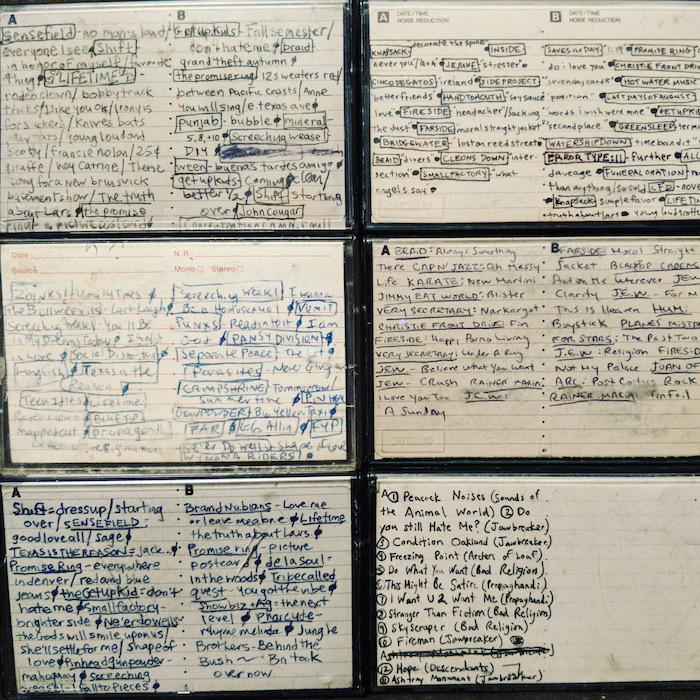 A
Sensefield - no man's land/
everyone I see Shift
in honor of myself/favorite
thing LIFETIME
rodeo clown/bobby truck
tricks/I like you ok/irony is
for suckers/Knives bats
new tats/young loud and
Scotty/franie nolan/25¢
giraffe/hey Catrine/Theme
song for a New brunswick
basement show/The truth
about Liars the promise
ring a picture postcard
B
Getupkids - Fall semester/
don't hate me braid
grand theft autumn
the promise ring 12 sweaters red/
between Pacific coasts/Anne
You will sing/e texas ave
Punjab - bubble mineral
5, 8, 10 Screeching weasel
DIY
ween - buenas tardes amigo
getupkids Coming clean/
better 1/2 Shift Starting
over John Cougar
A DATE/TIME
NOISE REDUCTION
KNAPSACK decorate the spine INSIDE
never you/Aza SKAVE stresser
CINCO DE GATOS ireland SIDE PROJECT
better friends HANDTOMOUTH soy sauce
love FIRESIDE headacher/Sucking
the dust FARSIDE moral straightjacket
BRIDGEWATER lost on reed street
BRAID divers CLEONS DOWN inter-
section SMALLFACTORY what
angels say
B DATE/TIME
NOISE REDUCTION
SAVES THE DAY 1:19 PROMISE RING
do i love you CHRISTIE FRONT DRIVE
seven day candle HOT WATER MUSIC
position LAST DAYS OF AUGUST
words i wish were mine GETUPKIDS
second place GREENSLEEP
WATERSHIP DOWN time bandit
ERROR TYPE:11 further
daveage FUNERAL ORATION
than anything/so sold CFD
Knapsack simple favor LIFETIME
truth about liars young loud scotty
Date
Source
N.R.
Mono Stereo
Boinks!/Family Times
The Bollweevils - Last Laugh
Screeching Weasel - You'll Be
in My Dreams Today I'm Not
in Love Social Distortion
Funglish Texas is the
Reason
Teen Idles Lifetime
BLUETIP
mapped out propagandhi
resignation
Screeching Weasel I wanna
Be a Homosexual VOMIT
PUNX - Readin It I am
God PANSY DIVISION
Separate Peace The
Parasites - Never Giving up
CRIMPSHRINE/Tommorow/
Summertime PINHEAD
GUNPOWDER/Big Yellow Taxi
FAR GG Allin FYP
Ne'er Do Wells Shape of Love
WYNONA RIDERS
A BRAID: Always Something
There CAP'N JAZZ: Oh Messy
Life KARATE: New Martini
JIMMY EAT WORLD: Blister
VERY SECRETARY: Narkargot
CHRISTIE FRONT DRIVE: Fin
FIRESIDE: Happy Porno Living
VERY SECRETARY: Under A Rug
JEW - Believe What You Want
JEW - Crush RAINER MARIA:
I Love You Too J.E.W.:
A Sunday
B FARSIDE: Moral Straight
Jacket BLACKTOP CADENCE
Shed on Me Wherever JEW
Clarity J.E.W. - For Me
This Is Heaven HUM:
Boystick PLANES MISTAKEN
FOR STARS: The Past Two
J.E.W.: Religion FIRESIDE
Not My Palace JOAN OF
ARC: Post Coitus Rock
RAINER MARIA: Tinfoil
A
Shift - dress up/starting
over/SENSEFIELD -
good love all/sage
TEXAS IS THE REASON - jack..
Promise Ring - everywhere
in denver/red and blue
jeans the Getup kid - don't
hate me smallfactory -
brighter side Ne'erdowells -
the rods will smile upon us/
she'll settle for me/Shape of
love Pinhead gunpowder -
mahogany screeching
weasel - i fall to pieces
B
Brand Nubians - Love me
or leave me alone Lifetime
the truth about Liars.
Promise ring - picture
postcard de la soul -
in the woods Tribe called
quest - You got the vibe
Showbiz + AG = the next
level Pharcyde -
rhyme melinda Jungle
Brothers - Behind the
Bush ~ Bn tack
over now
A ① Peacock Noises (Sounds of
the Animal World) ② Do
you still Hate Me? (Jawbreaker)
③ Condition Oakland (Jawbreaker)
④ Freezing Point (Archers of Loaf)
⑤ Do What You Want (Bad Religion)
⑥ This Might Be Satire (Propaghandi)
⑦ I Want U 2 Want Me (Propaghandi)
⑧ Stranger Than Fiction (Bad Religion)
⑨ Skyscraper (Bad Religion)
⑩ Fireman (Jawbreaker)
⑫ Hope (Descendants)
⑪ Ashtray Monument (Jawbreaker)